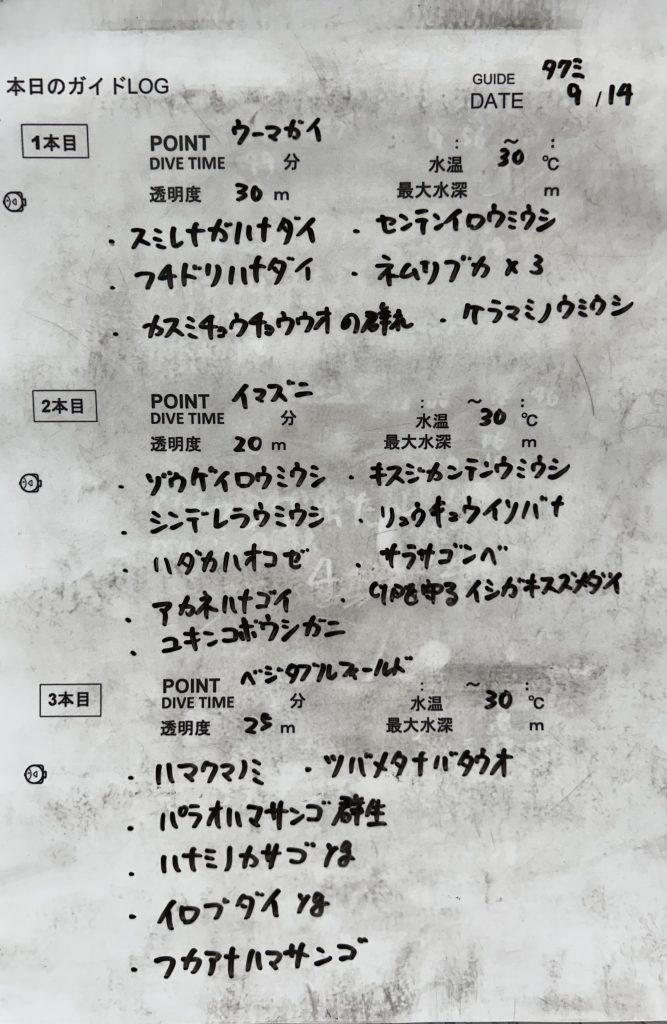 本日のガイドLOG
GUIDE タクミ
DATE 9 / 14
1本目
POINT ウーマガイ : ～ :
DIVE TIME 分 水温 30 ℃
透明度 30 m 最大水深 m
・スミレナガハナダイ ・センテンイロウミウシ
・フチドリハナダイ ・ネムリブカ × 3
・カスミチョウチョウウオの群れ ・ケラマミノウミウシ
2本目
POINT イマズニ : ～ :
DIVE TIME 分 水温 30 ℃
透明度 20 m 最大水深 m
・ゾウゲイロウミウシ ・キスジカンテンウミウシ
・シンデレラウミウシ ・リュウキュウイソバナ
・ハダカハオコゼ ・サラサゴンベ
・アカネハナゴイ ・卵を守るイシガキスズメダイ
・ユキンコボウシガニ
3本目
POINT ベジタブルフィールド : ～ :
DIVE TIME 分 水温 30 ℃
透明度 25 m 最大水深 m
・ハマクマノミ ・ツバメタナバタウオ
・パラオハマサンゴ群生
・ハナミノカサゴ yg
・イロブダイ yg
・フカアナハマサンゴ